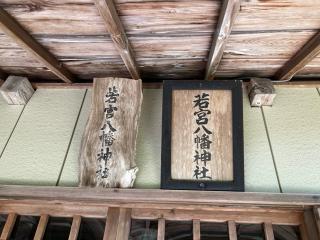 若宮八幡神社
若宮八幡神社